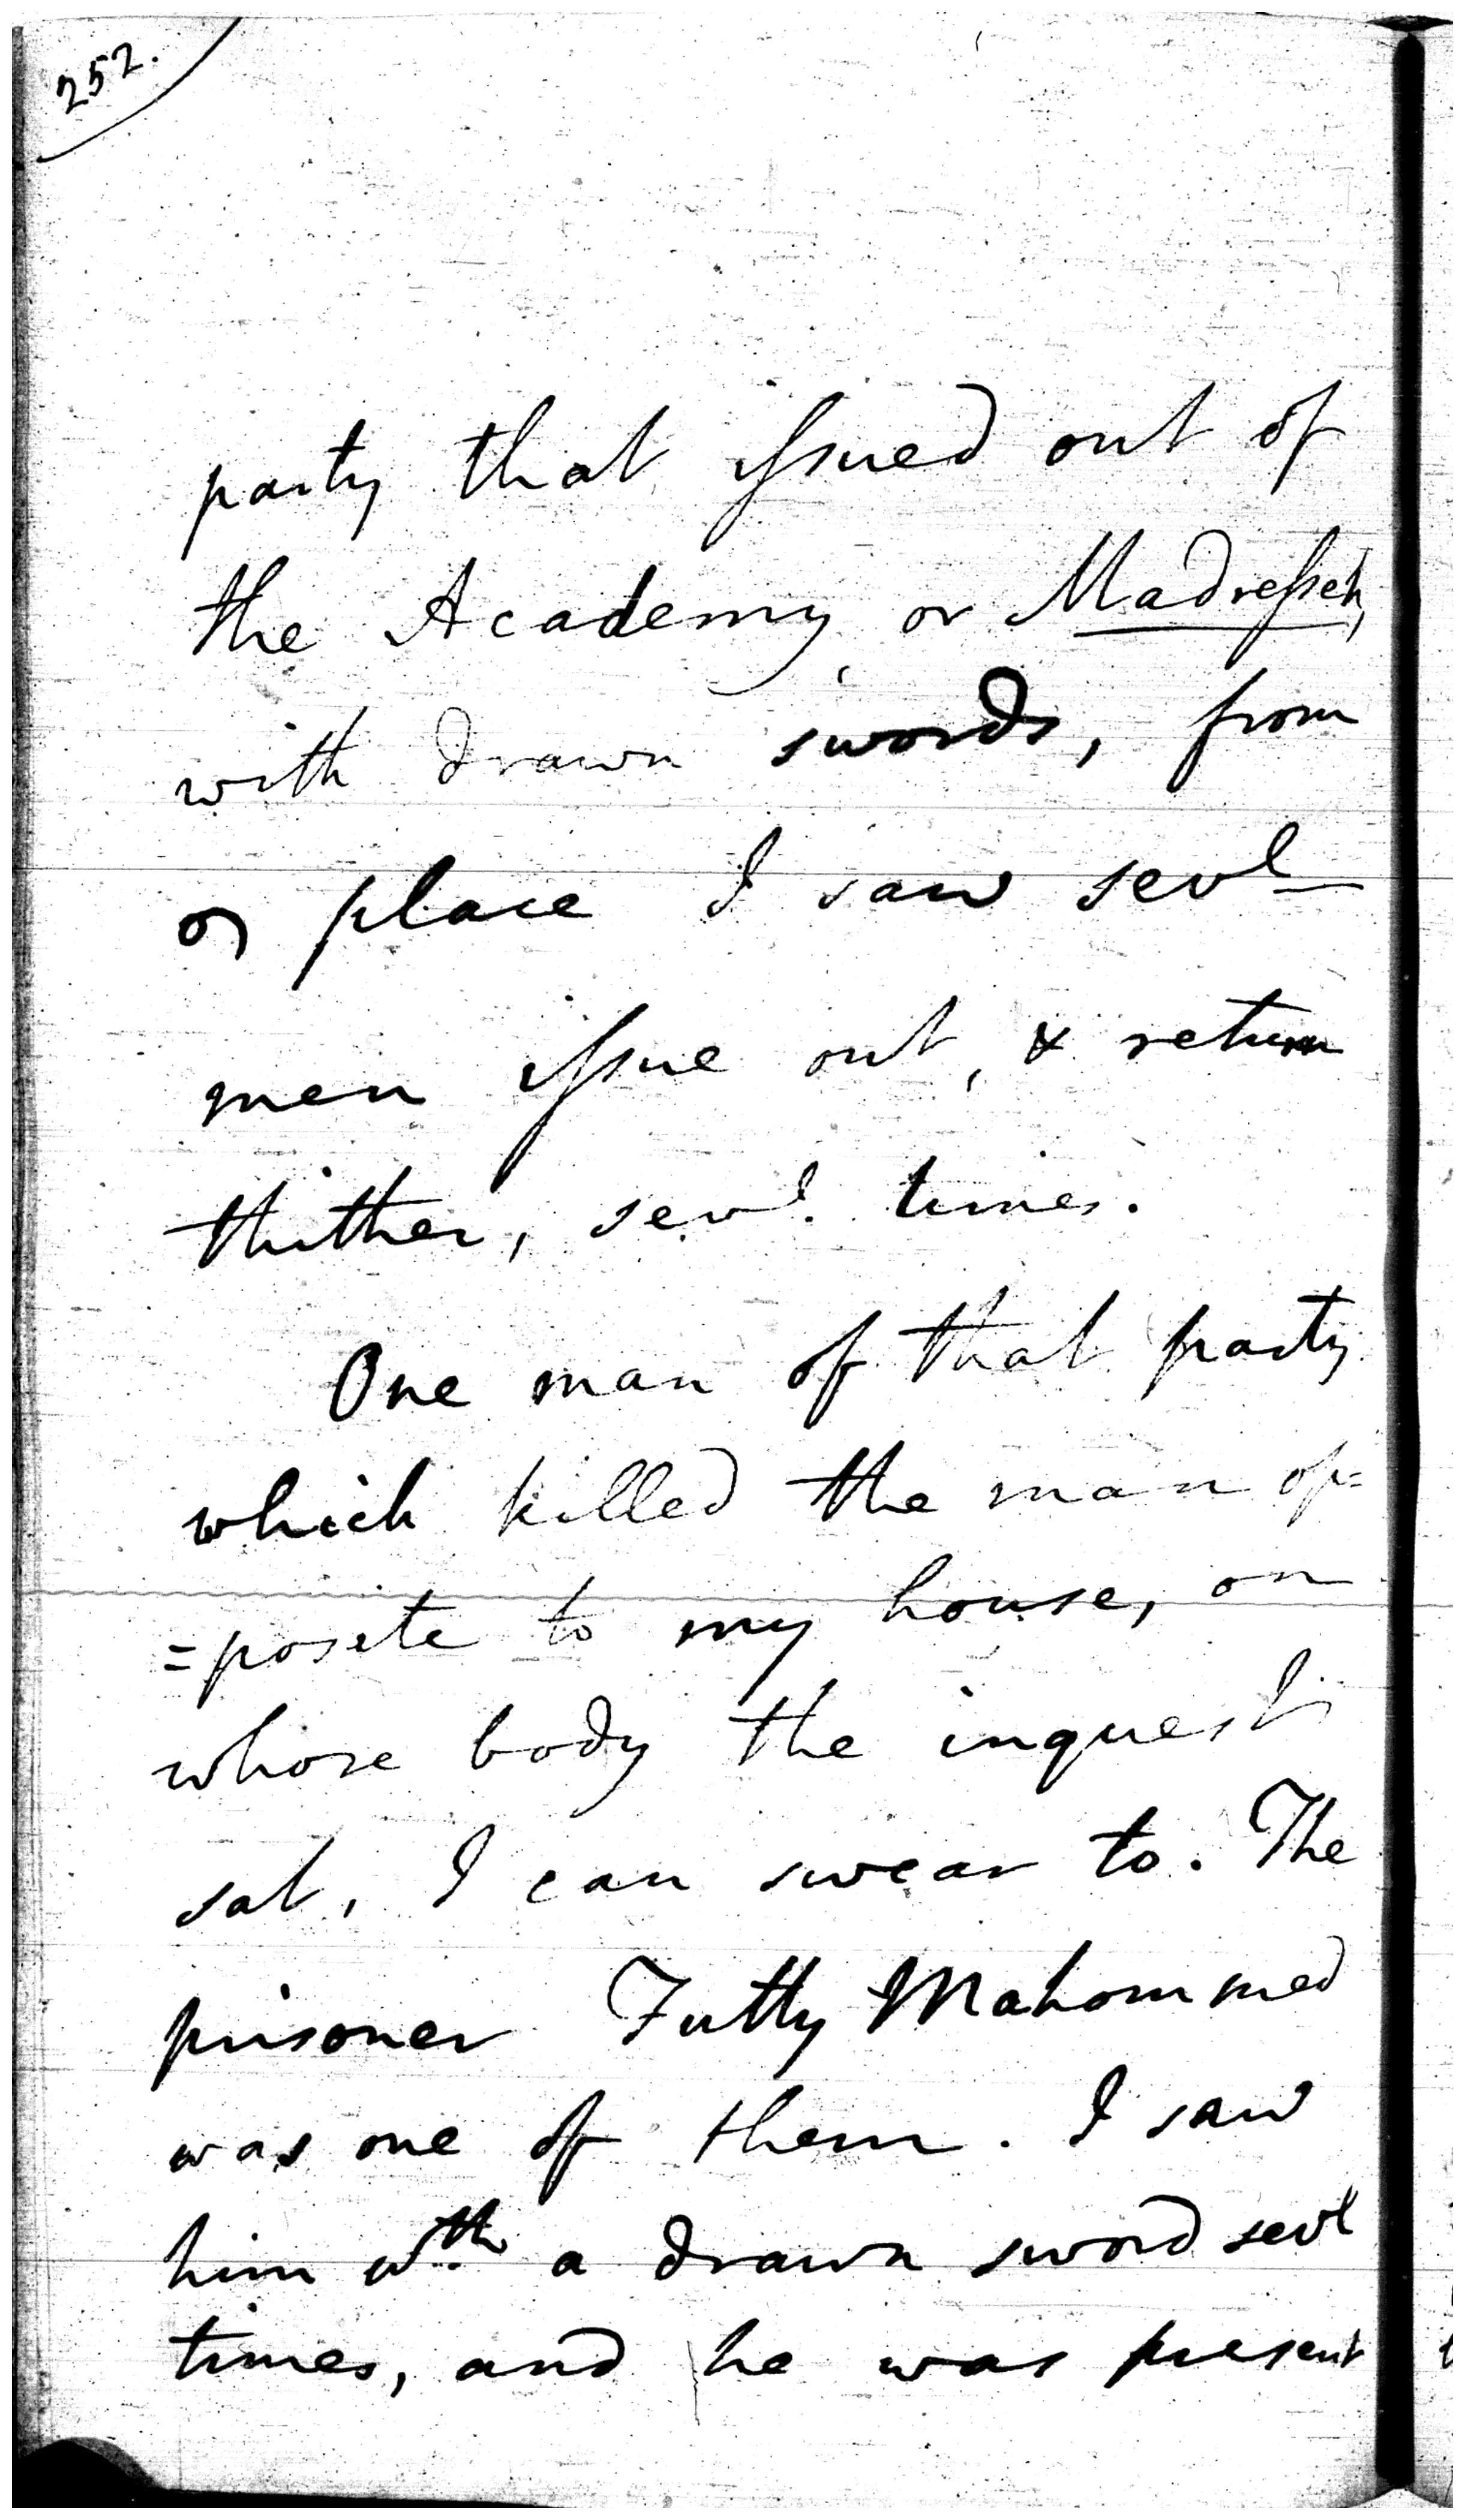 252.
party that issued out of
the Academy or Madresseh,
with drawn swords, from
place I saw sevl
men issue out, & return
thither, sevl. times.
One man of that party
which killed the man op=
=posite to my house, on
whose body the inquest
sat, I can swear to. The
prisoner Futty Mahommed
was one of them. I saw
him wth a drawn sword sevl
times, and he was present